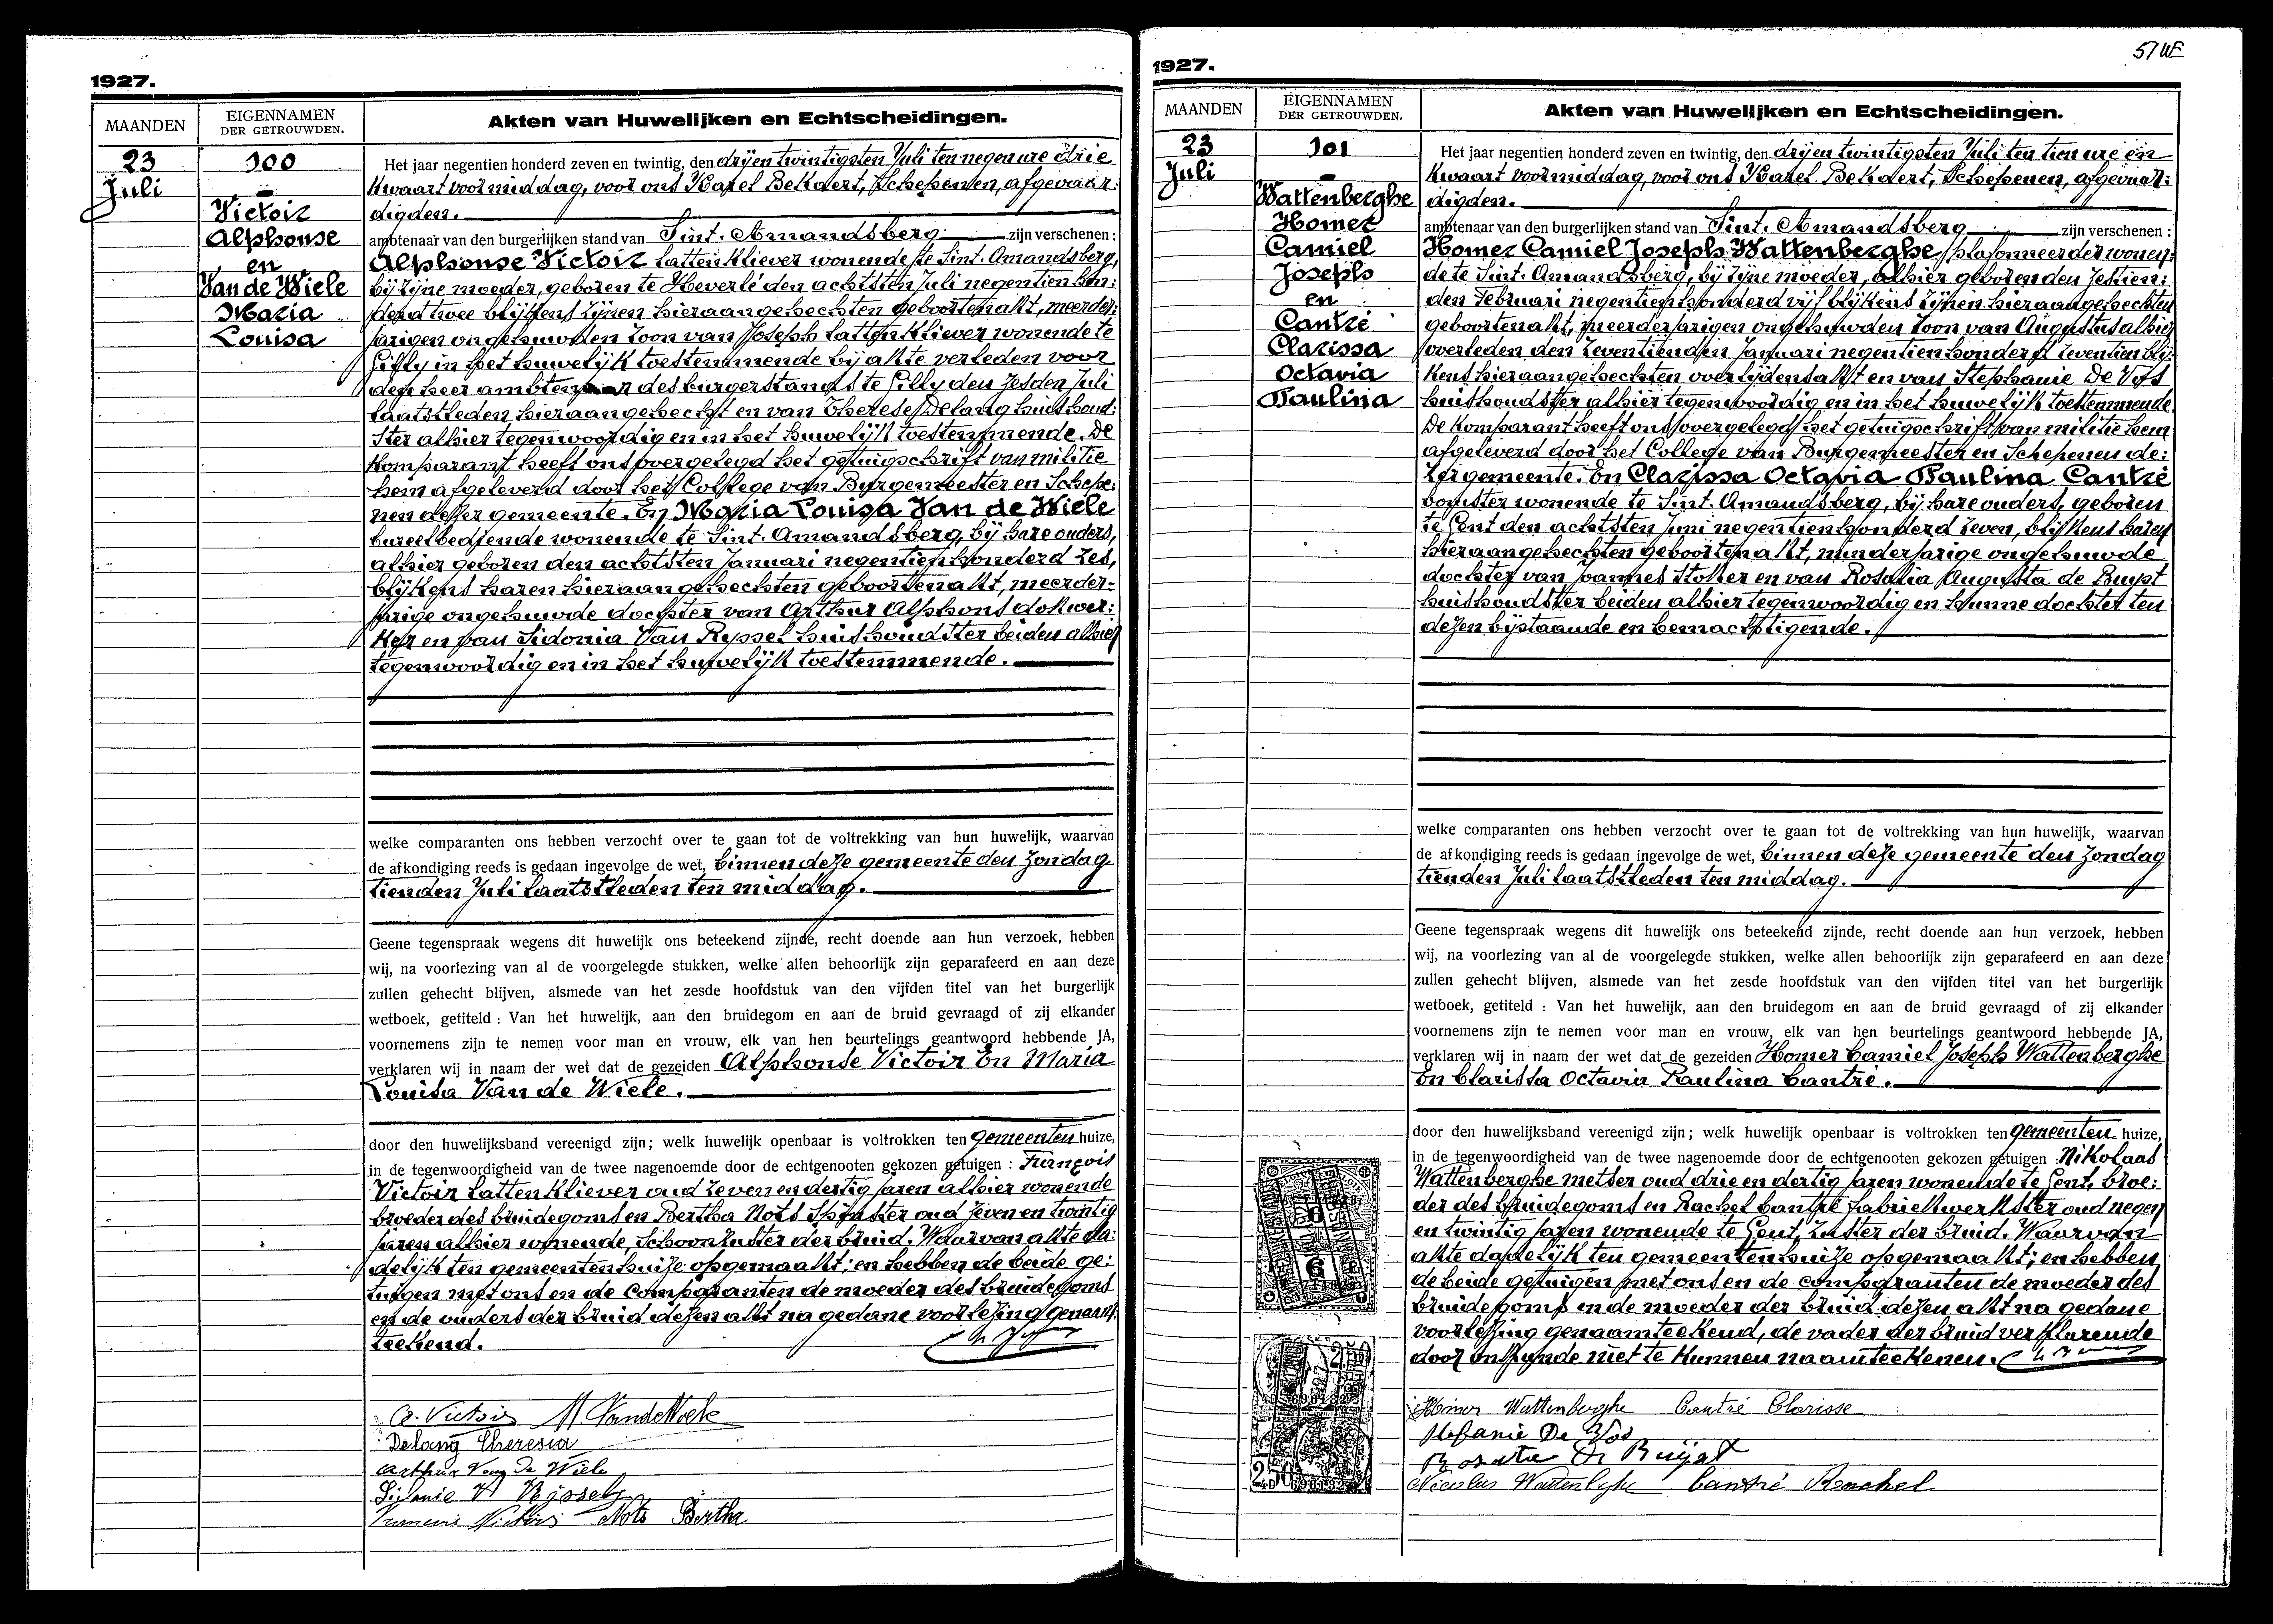 1927.
MAANDEN
EIGENNAMEN
DER GETROUWDEN.
Akten van Huwelijken en Echtscheidingen.
23
Juli
100
Victoir
Alphonse
en
Van de Wiele
Maria
Louisa
Het jaar negentien honderd zeven en twintig, den drijentwintigsten Juli ten negen ure drie
kwaart voormiddag, voor ons Karel Bekaert, Schepenen, afgevaar:
digden.
ambtenaar van den burgerlijken stand van Sint. Amandsberg zijn verschenen :
Alphonse Victoir lattenkliever wonende te Sint. Amandsberg,
bij zijne moeder, geboren te Heverlé den achtsten Juli negentien hon:
derd twee blijkens zijnen hieraangehechten geboortenakt, meerder:
jarigen ongehuwden zoon van Joseph lattenkliever wonende te
Gilly in het huwelijk toestemmende bij akte verleden voor
den heer ambtenaar des burgerstands te Gilly den zesden Juli
laatstleden hieraangehecht en van Therese Delang huishoud:
ster alhier tegenwoordig en in het huwelijk toestemmende. De
komparant heeft ons overgelegd het getuigschrift van militie
hem afgeleverd door het College van Burgemeester en Schepe:
nen dezer gemeente. En Maria Louisa Van de Wiele
bureelbediende wonende te Sint. Amandsberg, bij hare ouders,
alhier geboren den achtsten Januari negentien honderd zes,
blijkens haren hieraangehechten geboortenakt, meerder:
jarige ongehuwde dochter van Arthur Alphons dokwer:
ker en van Sidonia Van Ryssel huishoudster beiden alhier
tegenwoordig en in het huwelijk toestemmende.
welke comparanten ons hebben verzocht over te gaan tot de voltrekking van hun huwelijk, waarvan
de afkondiging reeds is gedaan ingevolge de wet, binnen deze gemeente den Zondag
tienden Juli laatstleden ten middag.
Geene tegenspraak wegens dit huwelijk ons beteekend zijnde, recht doende aan hun verzoek, hebben
wij, na voorlezing van al de voorgelegde stukken, welke allen behoorlijk zijn geparafeerd en aan deze
zullen gehecht blijven, alsmede van het zesde hoofdstuk van den vijfden titel van het burgerlijk
wetboek, getiteld : Van het huwelijk, aan den bruidegom en aan de bruid gevraagd of zij elkander
voornemens zijn te nemen voor man en vrouw, elk van hen beurtelings geantwoord hebbende JA,
verklaren wij in naam der wet dat de gezeiden Alphonse Victoir En Maria
Louisa Van de Wiele.
door den huwelijksband vereenigd zijn; welk huwelijk openbaar is voltrokken ten gemeenten huize,
in de tegenwoordigheid van de twee nagenoemde door de echtgenooten gekozen getuigen : François
Victoir lattenkliever oud zeven en dertig jaren alhier wonende
broeder des bruidegoms en Bertha Nots spinster oud zeven en twintig
jaren alhier wonende, Schoonzuster der bruid. Waarvan akte da:
delijk ten gemeentenhuize opgemaakt; en hebben de beide ge:
tuigen met ons en de comparanten de moeder des bruidegoms
en de ouders der bruid dezen akt na gedane voorlezing genaam:
teekend.
A. Victoir M VandeWiele
Delang Theresia
Arthur Van De Wiele
Sidonie V Rijssel
Francois Victoir Nots Bertha
57
1927.
MAANDEN
EIGENNAMEN
DER GETROUWDEN.
Akten van Huwelijken en Echtscheidingen.
23
Juli
101
Wattenberghe
Homer
Camiel
Joseph
en
Cantré
Clarissa
Octavia
Paulina
Het jaar negentien honderd zeven en twintig, den drijentwintigsten Juli ten tien ure één
kwaart voormiddag, voor ons Karel Bekaert, Schepenen, afgevaar:
digden.
ambtenaar van den burgerlijken stand van Sint. Amandsberg zijn verschenen :
Homer Camiel Joseph Wattenberghe, plafonneerder wonen:
de te Sint. Amandsberg, bij zijne moeder, alhier geboren den zestien:
den Februari negentienhonderd vijf blijkens zijnen hieraangehechten
geboortenakt, meerderjarigen ongehuwden zoon van Augustus alhier
overleden den zeventienden Januari negentienhonderd zeventien blij:
kens hieraangehechten overlijdensakt en van Stephanie De Vos
huishoudster alhier tegenwoordig en in het huwelijk toestemmende.
De komparant heeft ons overgelegd het getuigschrift van militie hem
afgeleverd door het College van Burgemeester en Schepenen de:
zer gemeente. En Clarissa Octavia Paulina Cantré
bomster wonende te Sint. Amandsberg, bij hare ouders, geboren
te Gent den achtsten Juni negentienhonderd zeven, blijkens haren
hieraangehechten geboortenakt, minderjarige ongehuwde
dochter van Joannes stoker en van Rosalia Augusta de Buyst
huishoudster beiden alhier tegenwoordig en hunne dochter ten
dezen bijstaande en bemachtigende.
welke comparanten ons hebben verzocht over te gaan tot de voltrekking van hun huwelijk, waarvan
de afkondiging reeds is gedaan ingevolge de wet, binnen deze gemeente den Zondag
tienden Juli laatstleden ten middag.
Geene tegenspraak wegens dit huwelijk ons beteekend zijnde, recht doende aan hun verzoek, hebben
wij, na voorlezing van al de voorgelegde stukken, welke allen behoorlijk zijn geparafeerd en aan deze
zullen gehecht blijven, alsmede van het zesde hoofdstuk van den vijfden titel van het burgerlijk
wetboek, getiteld : Van het huwelijk, aan den bruidegom en aan de bruid gevraagd of zij elkander
voornemens zijn te nemen voor man en vrouw, elk van hen beurtelings geantwoord hebbende JA,
verklaren wij in naam der wet dat de gezeiden Homer Camiel Joseph Wattenberghe
En Clarissa Octavia Paulina Cantré.
door den huwelijksband vereenigd zijn; welk huwelijk openbaar is voltrokken ten gemeenten huize,
in de tegenwoordigheid van de twee nagenoemde door de echtgenooten gekozen getuigen : Nikolaas
Wattenberghe metser oud drie en dertig jaren wonende te Gent, broe:
der des bruidegoms en Rachel Cantré fabriekwerkster oud negen
en twintig jaren wonende te Gent, zuster der bruid. Waarvan
akte dadelijk ten gemeentenhuize opgemaakt; en hebben
de beide getuigen met ons en de comparanten de moeder des
bruidegoms en de moeder der bruid dezen akt na gedane
voorlezing genaamteekend, de vader der bruid verklarende
door onkunde niet te kunnen naamteekenen.
Homer Wattenberghe Cantré Clarisse
Stefanie De Vos
De
Nicolas Wattenberghe Cantré Rachel